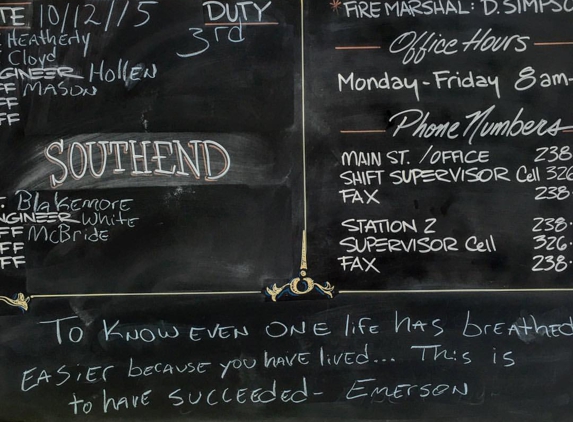 TE 10/12/15 DUTY
3rd
Heatherly
Cloyd
GINEER Hollen
FF MASON
FF
FF
SOUTHEND
. Blakemore
NGINEER White
FF McBride
FF
FF
*FIRE MARSHAL: D. SIMPSO
Office Hours
Monday-Friday 8am-
Phone Numbers
MAIN ST. /OFFICE 238-
SHIFT SUPERVISOR Cell 326
FAX 238-
STATION 2 238-
SUPERVISOR Cell 326-
FAX 238-
To KNOW EVEN ONE life HAS breathed
EASiER because you have lived... This is
to have SUCCEEDED- EMERSON